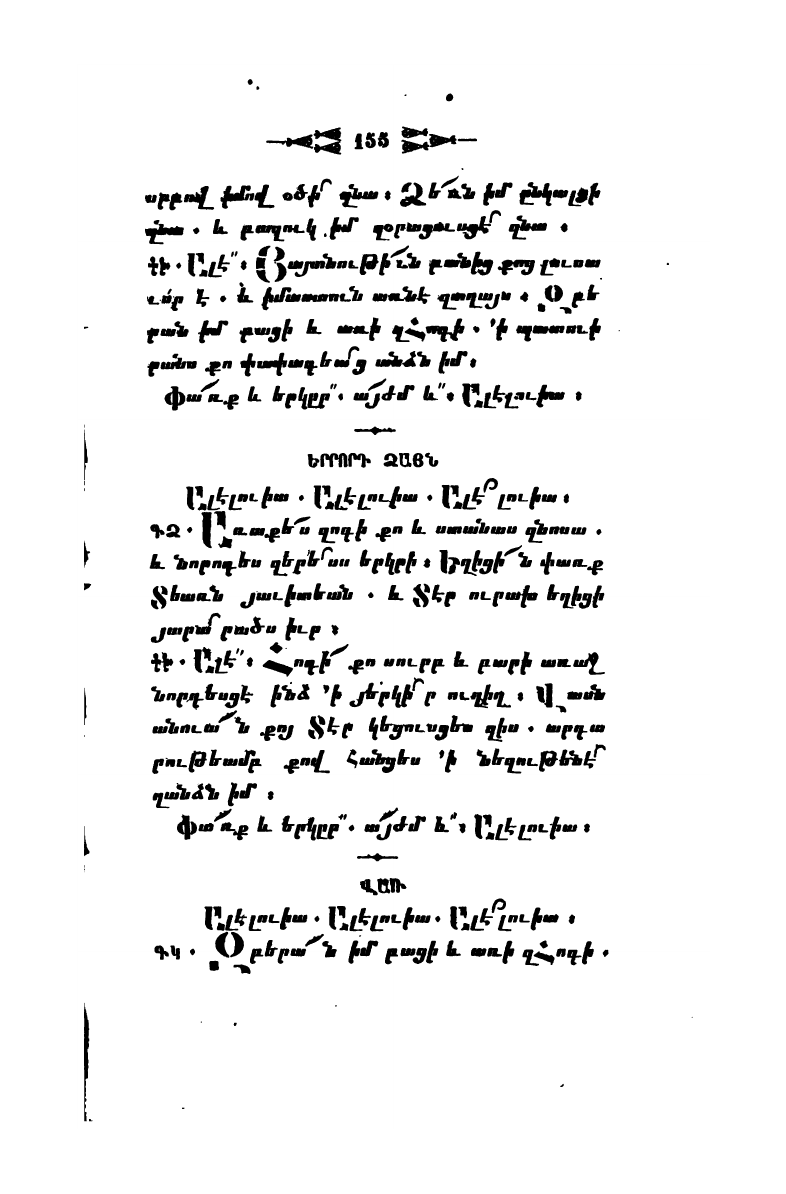 155
սրբով իմով օծի՛ զնա ։ Ձե՛ռն իմ ընկալցի
զնա . և բազուկ իմ զօրացուսցէ՛ զնա ։
ԳԻ . Ալէ՛՛։ Յայտնութի՛ւն բանից քոց լուսա
ւոր է . և իմաստուն առնէ զտղայս ։ Զբե
րան իմ բացի և առի զՀոգի . ՚ի պատուի
րանս քո փափագեա՛ց անձն իմ ։
Փա՛ռք և երկրր՛՛. ա՛յժմ և՛՛։ Ալէլուիա ։
ԵՐՐՈՐԴ ՁԱՅՆ
Ալէլուիա . Ալէլուիա . Ալէ՛լուիա ։
ԳՁ . Առաքե՛ս զոգի քո և ստանաս զնոսա .
և նորոգես զերե՛սս երկրի ։ Եղիցի՛ն փառք
Տեառն յաւիտեան . և Տէր ուրախ եղիցի
յարա՛րածս իւր ։
ԳԻ . Ալէ՛՛։ Հոգի՛ քո սուրբ և բարի առաջ
նորդեսցէ ինձ ՚ի յերկի՛ր ուղիղ ։ Վասն
անուա՛ն քոյ Տէր կեցուսցես զիս . արդա
րութեամբ քով հանցես ՚ի նեղութենէ՛
զանձն իմ ։
Փա՛ռք և երկրր՛՛. ա՛յժմ և՛՛։ Ալէլուիա ։
ՎԱՌ
Ալէլուիա . Ալէլուիա. Ալէ՛լուիա ։
ԳԿ . Զբերա՛ն իմ բացի և առի զՀոգի .